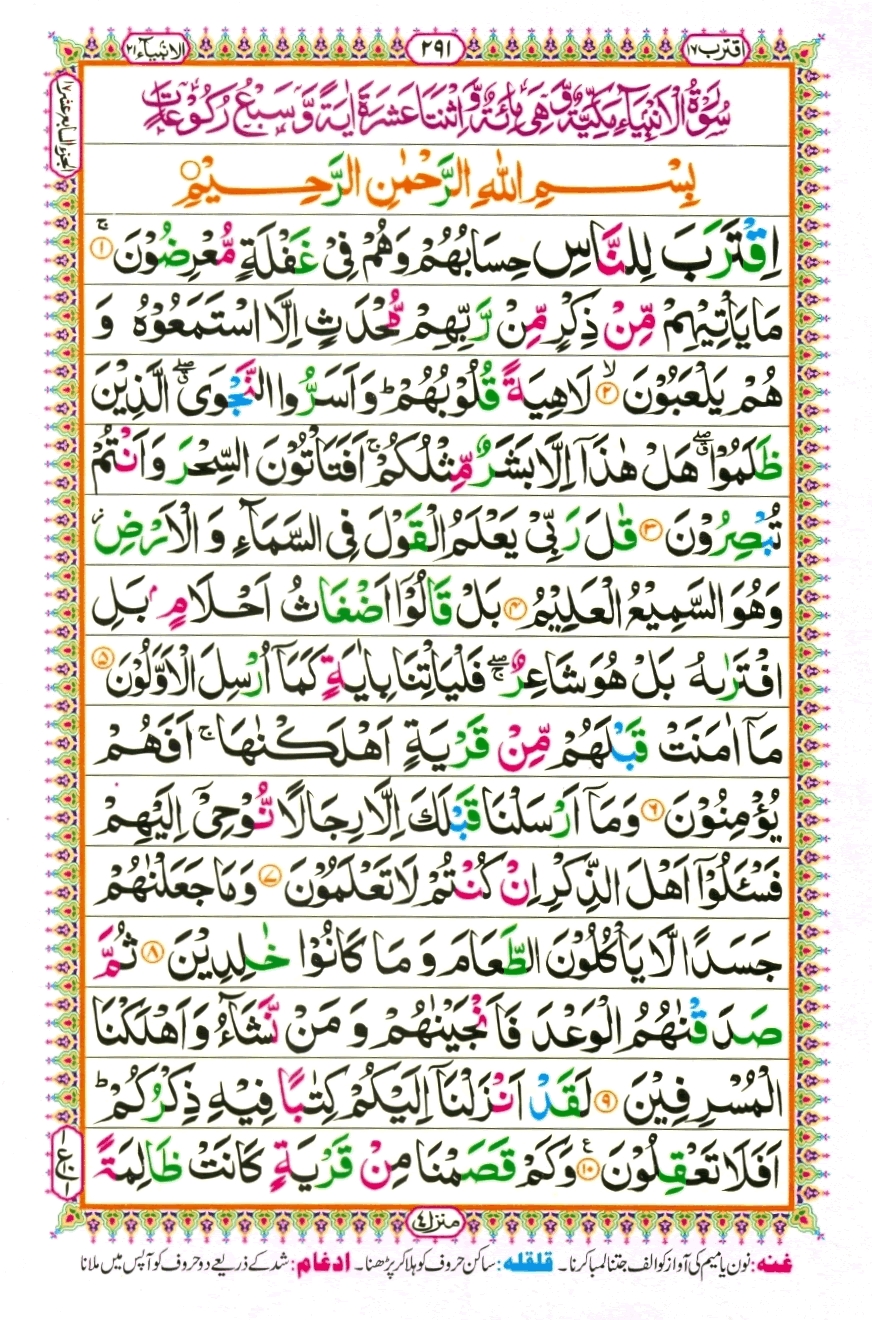 اقترب ١٧
٢٩١
الانبیآء ٢١
الجزء السابع عشر ١٧
سُوْرَةُ الْاَنْۢبِيَآءِ مَكِّيَّةٌ وَّهِيَ مِائَةٌ وَّاِثْنَتَا عَشَرَةَ اٰيَةً وَّسَبْعُ رُكُوْعَاتٍ
بِسْمِ اللّٰهِ الرَّحْمٰنِ الرَّحِيْمِ
اِقْتَرَبَ لِلنَّاسِ حِسَابُهُمْ وَهُمْ فِيْ غَفْلَةٍ مُّعْرِضُوْنَ ۚ ١
مَا يَاْتِيْهِمْ مِّنْ ذِكْرٍ مِّنْ رَّبِّهِمْ مُّحْدَثٍ اِلَّا اسْتَمَعُوْهُ وَ
هُمْ يَلْعَبُوْنَ ۙ ٢ لَاهِيَةً قُلُوْبُهُمْ ؕ وَاَسَرُّوا النَّجْوَى ۖۗ الَّذِيْنَ
ظَلَمُوْا ۖۗ هَلْ هٰذَاۤ اِلَّا بَشَرٌ مِّثْلُكُمْ ۚ اَفَتَاْتُوْنَ السِّحْرَ وَاَنْتُمْ
تُبْصِرُوْنَ ٣ قٰلَ رَبِّيْ يَعْلَمُ الْقَوْلَ فِي السَّمَآءِ وَ الْاَرْضِ ؗ
وَهُوَ السَّمِيْعُ الْعَلِيْمُ ٤ بَلْ قَالُوْۤا اَضْغَاثُ اَحْلَامٍۢ بَلِ
افْتَرٰىهُ بَلْ هُوَ شَاعِرٌ ۖۚ فَلْيَاْتِنَا بِاٰيَةٍ كَمَاۤ اُرْسِلَ الْاَوَّلُوْنَ ٥
مَاۤ اٰمَنَتْ قَبْلَهُمْ مِّنْ قَرْيَةٍ اَهْلَكْنٰهَا ۚ اَفَهُمْ
يُؤْمِنُوْنَ ٦ وَمَاۤ اَرْسَلْنَا قَبْلَكَ اِلَّا رِجَالًا نُّوْحِيْۤ اِلَيْهِمْ
فَسْـَٔلُوْۤا اَهْلَ الذِّكْرِ اِنْ كُنْتُمْ لَا تَعْلَمُوْنَ ٧ وَمَا جَعَلْنٰهُمْ
جَسَدًا لَّا يَاْكُلُوْنَ الطَّعَامَ وَ مَا كَانُوْا خٰلِدِيْنَ ٨ ثُمَّ
صَدَقْنٰهُمُ الْوَعْدَ فَاَنْجَيْنٰهُمْ وَ مَنْ نَّشَآءُ وَاَهْلَكْنَا
الْمُسْرِفِيْنَ ٩ لَقَدْ اَنْزَلْنَاۤ اِلَيْكُمْ كِتٰبًا فِيْهِ ذِكْرُكُمْ ؕ
اَفَلَا تَعْقِلُوْنَ ١٠ ع وَكَمْ قَصَمْنَا مِنْ قَرْيَةٍ كَانَتْ ظَالِمَةً
منزل ٤
غنہ: نون یا میم کی آواز کو الف جتنا لمبا کرنا۔ قلقلہ: ساکن حروف کو ہلا کر پڑھنا۔ ادغام: شد کے ذریعے دو حروف کو آپس میں ملانا